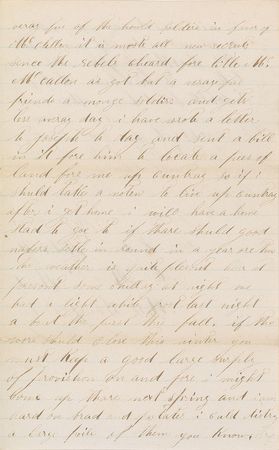 veray few of the hours soldiers in favor of
Mc Callen it is mostle all new recruits
since the Rebels cleard fore little Mc
Mc Callen as got but a veray few
friends a monge soldiers and gets
less veray day i have wrote a letter
to Joseph to day and sent a bill
in it fore him to locate a pees of
land fore me up cuntray so if i
should take a noten to live up cuntray
after i get home i will have a home
stad to goe to if thare should good
nabors settle in round in a year ore two
the weather is quite plesent hear at
present some cooller at night we
had a light white frost last night
a bout the first this fall if the
ware should close this winter you
must keep a good large suply
of provition on and fore i might
come up thare next spring and i am
hard on bread and potatoes i could distroy
a large pile of them you know